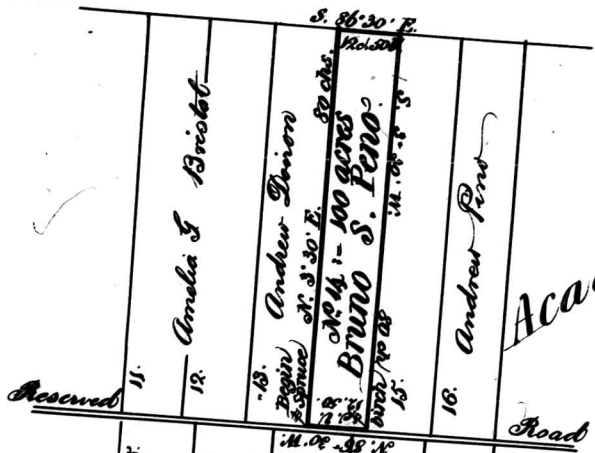 S. 86°30' E.
12ch.50l
11.
12.
Amelia G Bristol
13.
Andrew Doiron
Begin
Spruce
N. 3°30' E. 80 chs.
No 14 :- 100 acres
Bruno S. Peno
birch
15.
16.
Andrew Pino
Reserved
Road